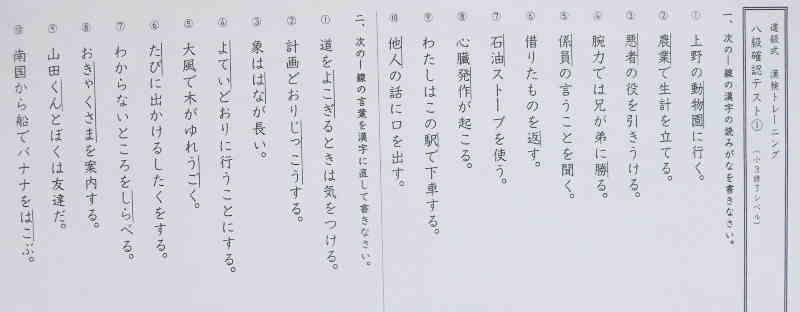 道級式 漢検トレーニング
八級確認テスト① (小3終了レベル)
一、次の―線の漢字の読みがなを書きなさい。
① 上野の動物園に行く。
② 農業で生計を立てる。
③ 悪者の役を引きうける。
④ 腕力では兄が弟に勝る。
⑤ 係員の言うことを聞く。
⑥ 借りたものを返す。
⑦ 石油ストーブを使う。
⑧ 心臓発作が起こる。
⑨ わたしはこの駅で下車する。
⑩ 他人の話に口を出す。
二、次の―線の言葉を漢字に直して書きなさい。
① 道をよこぎるときは気をつける。
② 計画どおりじっこうする。
③ 象ははなが長い。
④ よていどおりに行うことにする。
⑤ 大風で木がゆれうごく。
⑥ たびに出かけるしたくをする。
⑦ わからないところをしらべる。
⑧ おきゃくさまを案内する。
⑨ 山田くんとぼくは友達だ。
⑩ 南国から船でバナナをはこぶ。